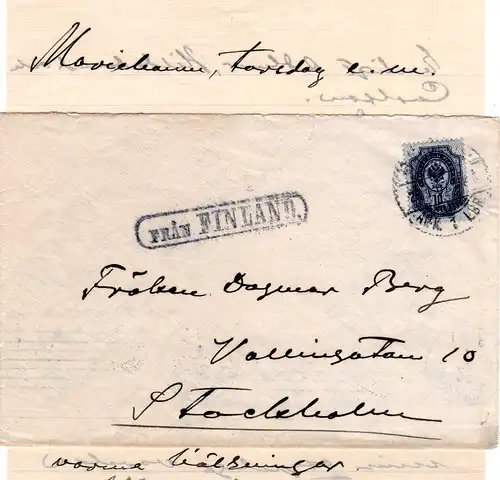 Mariehamn, torsdag e.m.
FRÅN FINLAND.
Fröken Dagmar Berg
Wallingatan 10
Stockholm
varma hälsningar